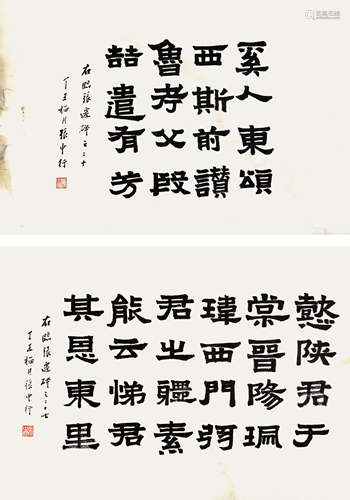 奚人東頌
西斯前讃
魯孝父殷
喆遣有芳
右臨張遷碑之二十
丁丑梅月張中行
憗陝君于
棠晉陽珮
瑋西門弜
君之疆素
能云悌君
其恩東里
右臨張遷碑之二十七
丁丑梅月張中行